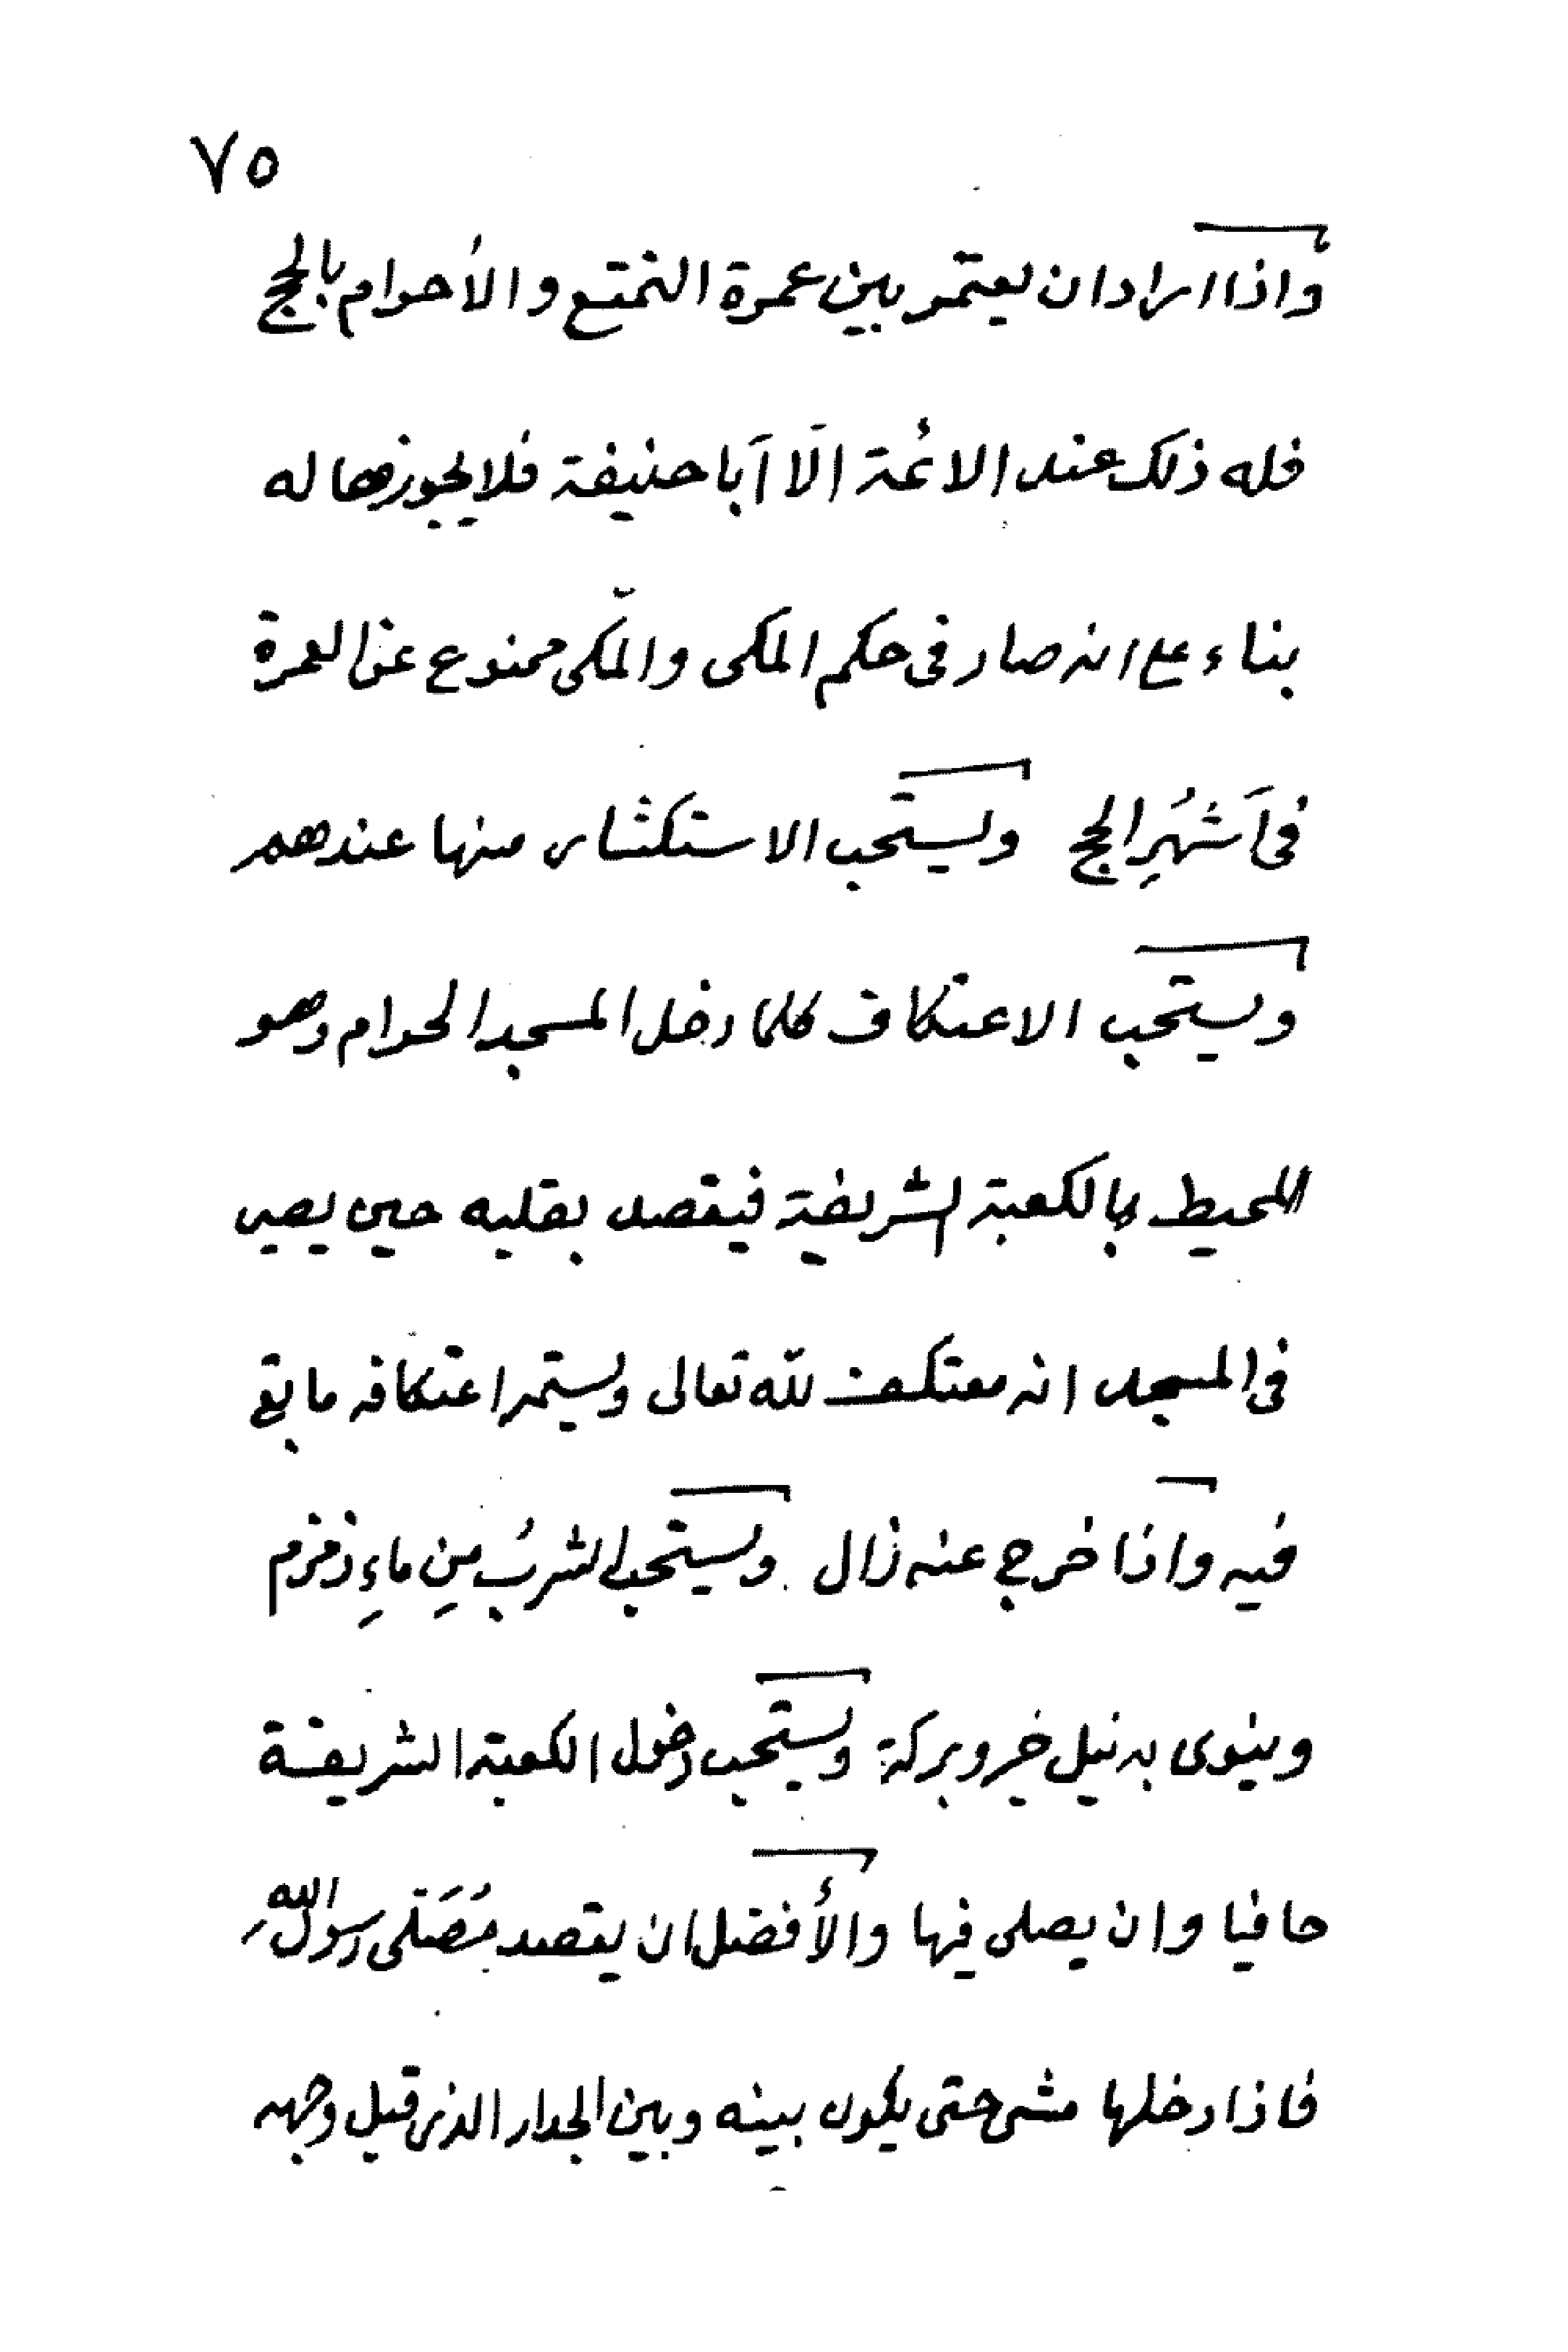 ٧٥
واذا اراد ان يعتمر بين عمرة التمتع والأحرام بالحج
فله ذلك عند الائمة الّا أبا حنيفة فلا يجوزها له
بناء على انه صار فى حكم المكى والمكّى ممنوع عن العمرة
فى أَشهُرِ الحج ويستحب الاستكثار منها عندهم
ويستحب الاعتكاف كلما دخل المسجد الحرام وهو
المحيط بالكعبة الشريفة فيقصد بقلبه حين يصير
فى المسجد انه معتكف لله تعالى ويستمر اعتكافه ما بقى
فيه واذا خرج عنه زال. ويستحب الشربُ مِن ماءِ زمزم
وينوى به نيل خير وبركة ويستحب دخول الكعبة الشريفة
حافيا وان يصلى فيها والأفضل ان يقصد مُصَلّى رسول الله
فاذا دخلها مشى حتى يكون بينه وبين الجدار الذى قبل وجهه